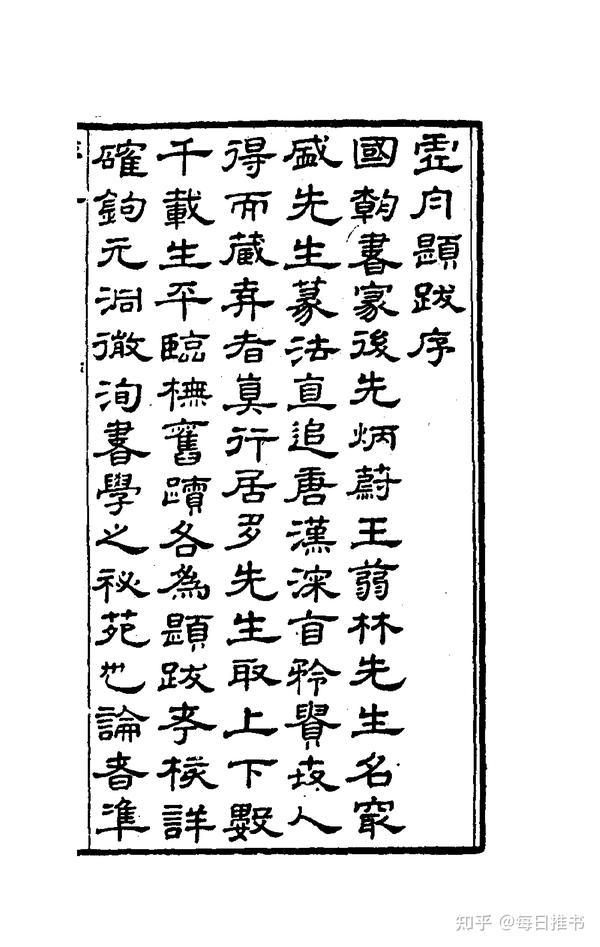 虛舟題跋序
國朝書家後先炳蔚王蒻林先生名最
盛先生篆法直追唐漢深自矜貴故人
得而藏弆者真行居多先生取上下數
千載生平臨橅舊蹟各為題跋考核詳
確鉤元洞微洵書學之祕苑也論者準
知乎 @每日推书